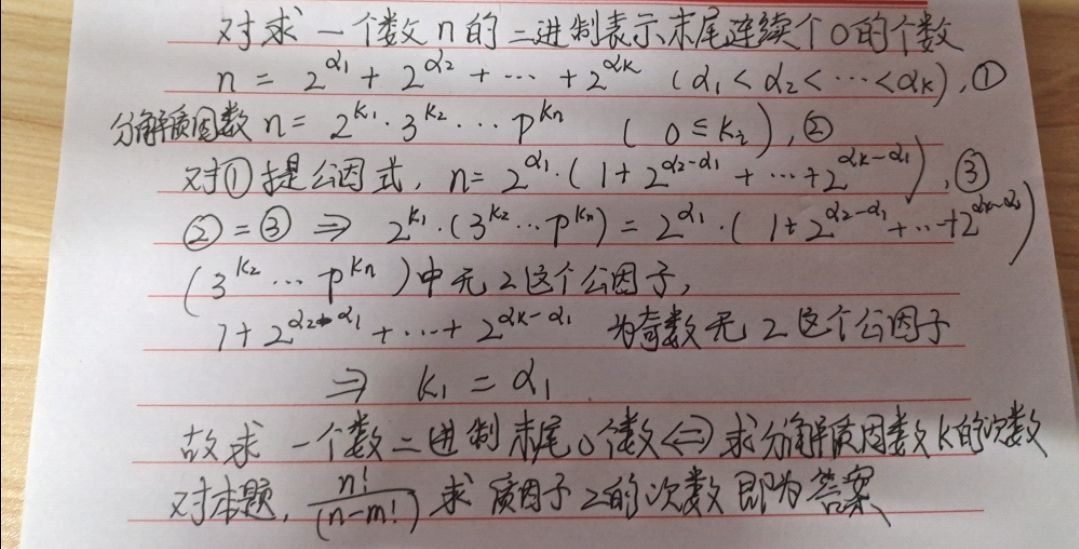 对求一个数n的二进制表示末尾连续个0的个数
n = 2^{α₁} + 2^{α₂} + ⋯ + 2^{αₖ} (α₁ < α₂ < ⋯ < αₖ), ①
分解质因数 n = 2^{k₁} · 3^{k₂} ⋯ p^{kₙ} (0 ≤ kᵢ), ②
对①提公因式, n = 2^{α₁} · (1 + 2^{α₂-α₁} + ⋯ + 2^{αₖ-α₁}), ③
② = ③ ⇒ 2^{k₁} · (3^{k₂} ⋯ p^{kₙ}) = 2^{α₁} · (1 + 2^{α₂-α₁} + ⋯ + 2^{αₖ-α₁})
(3^{k₂} ⋯ p^{kₙ})中无2这个公因子,
1 + 2^{α₂-α₁} + ⋯ + 2^{αₖ-α₁} 为奇数无2这个公因子
⇒ k₁ = α₁
故求一个数二进制末尾0个数⇔求分解质因数k的次数
对本题, n!/(n-m!) 求质因子2的次数即为答案